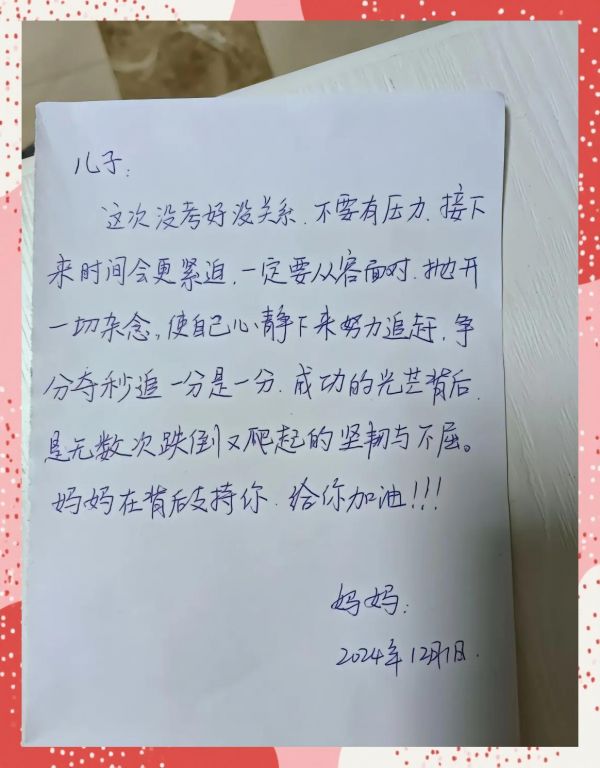 儿子:
这次没考好没关系.不要有压力.接下
来时间会更紧迫.一定要从容面对.抛开
一切杂念。使自己心静下来努力追赶.争
分夺秒追一分是一分.成功的光芒背后.
是无数次跌倒又爬起的坚韧与不屈。
妈妈在背后支持你.给你加油!!!
妈妈:
2024年12月1日.